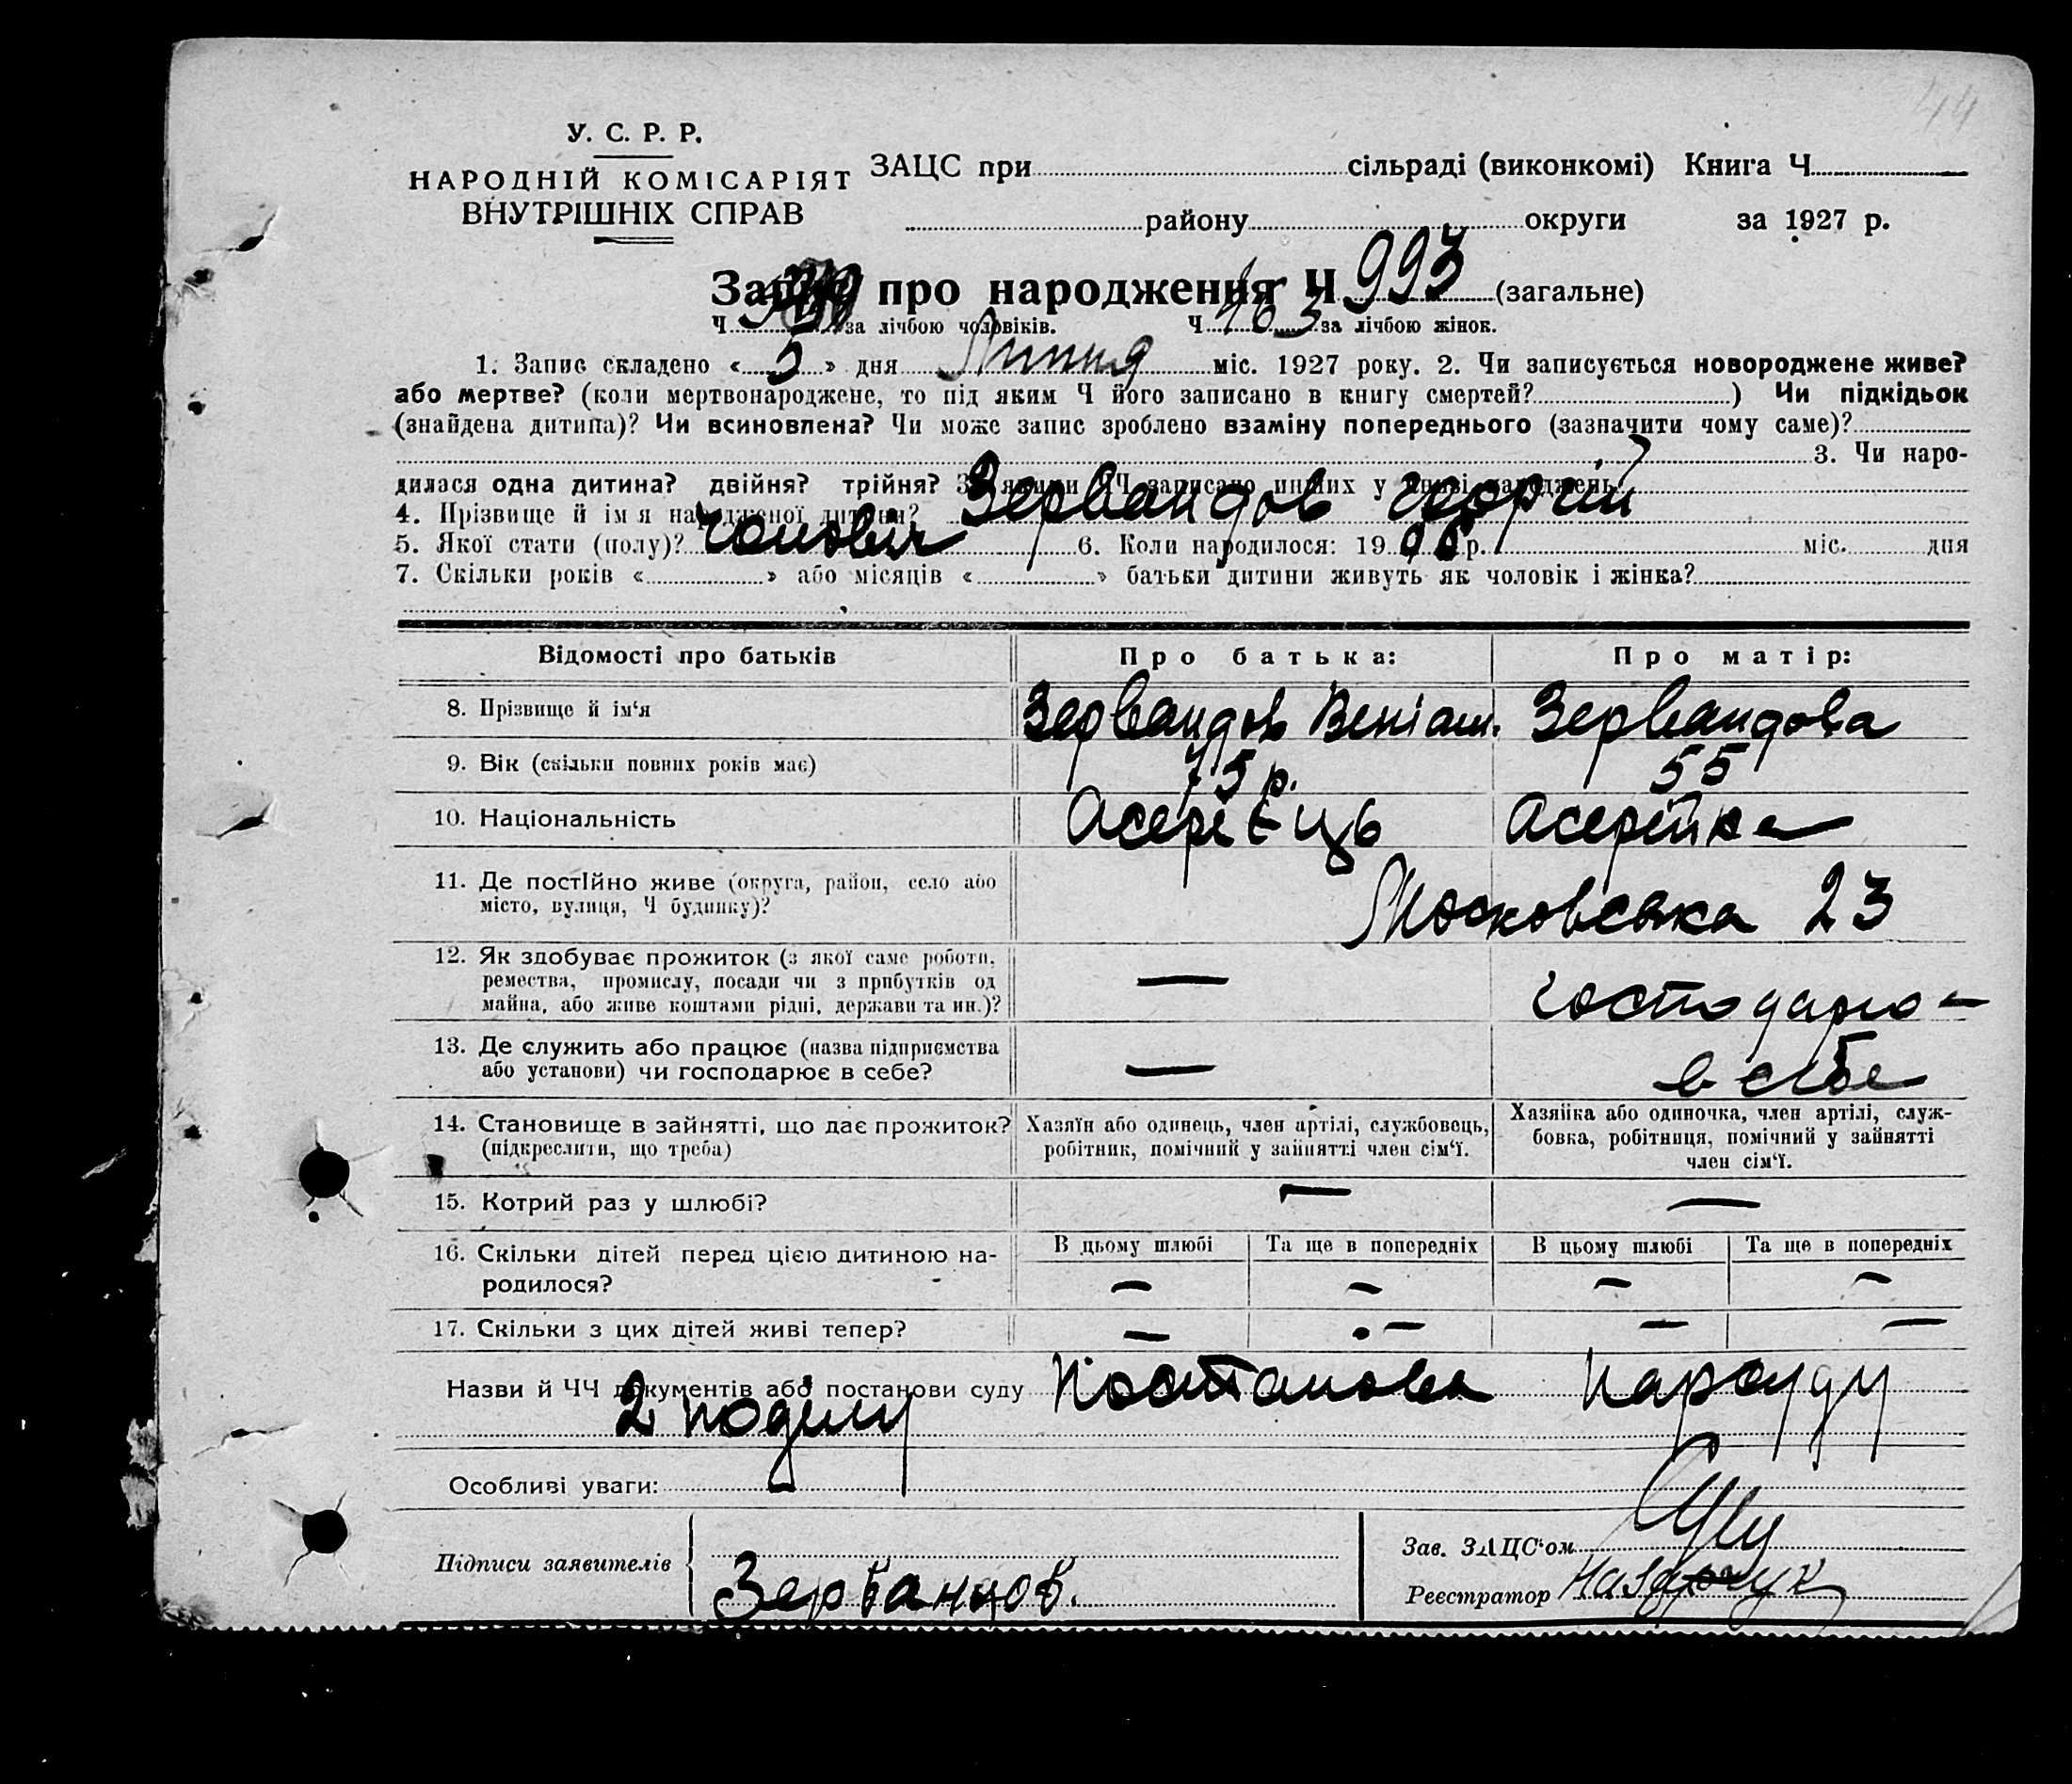 44
У. С. Р. Р.
НАРОДНІЙ КОМІСАРІЯТ
ВНУТРІШНІХ СПРАВ
ЗАЦС при сільраді (виконкомі) Книга Ч
району округи за 1927 р.
Запис про народження Ч 993 (загальне)
Ч за лічбою чоловіків. Ч 463 за лічбою жінок.
1. Запис складено « 5 » дня Липня міс. 1927 року. 2. Чи записується новороджене живе?
або мертве? (коли мертвонароджене, то під яким Ч його записано в книгу смертей? ) Чи підкідьок
(знайдена дитина)? Чи всиновлена? Чи може запис зроблено взаміну попереднього (зазначити чому саме)?
3. Чи наро-
дилася одна дитина? двійня? трійня? З якими ЧЧ записано инших у книзі народжень?
4. Прізвище й ім'я народженої дитини? Зервандов Георгій
5. Якої стати (полу)? чоловіч 6. Коли народилося: 1906 р. міс. дня
7. Скільки років « » або місяців « » батьки дитини живуть як чоловік і жінка?
Відомості про батьків Про батька: Про матір:
8. Прізвище й ім'я Зервандов Веніам. Зервандова
9. Вік (скільки повних років має) 75 р. 55
10. Національність Асерієць Асерійка
11. Де постійно живе (округа, район, село або
місто, вулиця, Ч будинку)? Московська 23
12. Як здобуває прожиток (з якої саме роботи,
ремества, промислу, посади чи з прибутків од
майна, або живе коштами рідні, держави та ин.)? — господарює
13. Де служить або працює (назва підприємства
або установи) чи господарює в себе? — в себе
14. Становище в зайнятті, що дає прожиток?
(підкреслити, що треба)
Хазяїн або одинець, член артілі, службовець,
робітник, помічний у зайнятті член сім'ї.
Хазяйка або одиночка, член артілі, служ-
бовка, робітниця, помічний у зайнятті
член сім'ї.
15. Котрий раз у шлюбі? — —
16. Скільки дітей перед цією дитиною на-
родилося?
В цьому шлюбі Та ще в попередніх В цьому шлюбі Та ще в попередніх
— — — —
17. Скільки з цих дітей живі тепер? — — — —
Назви й ЧЧ документів або постанови суду Постанова Нарсуду
2 поділу
Особливі уваги:
Підписи заявителів Зервандов.
Зав. ЗАЦС'ом
Реєстратор